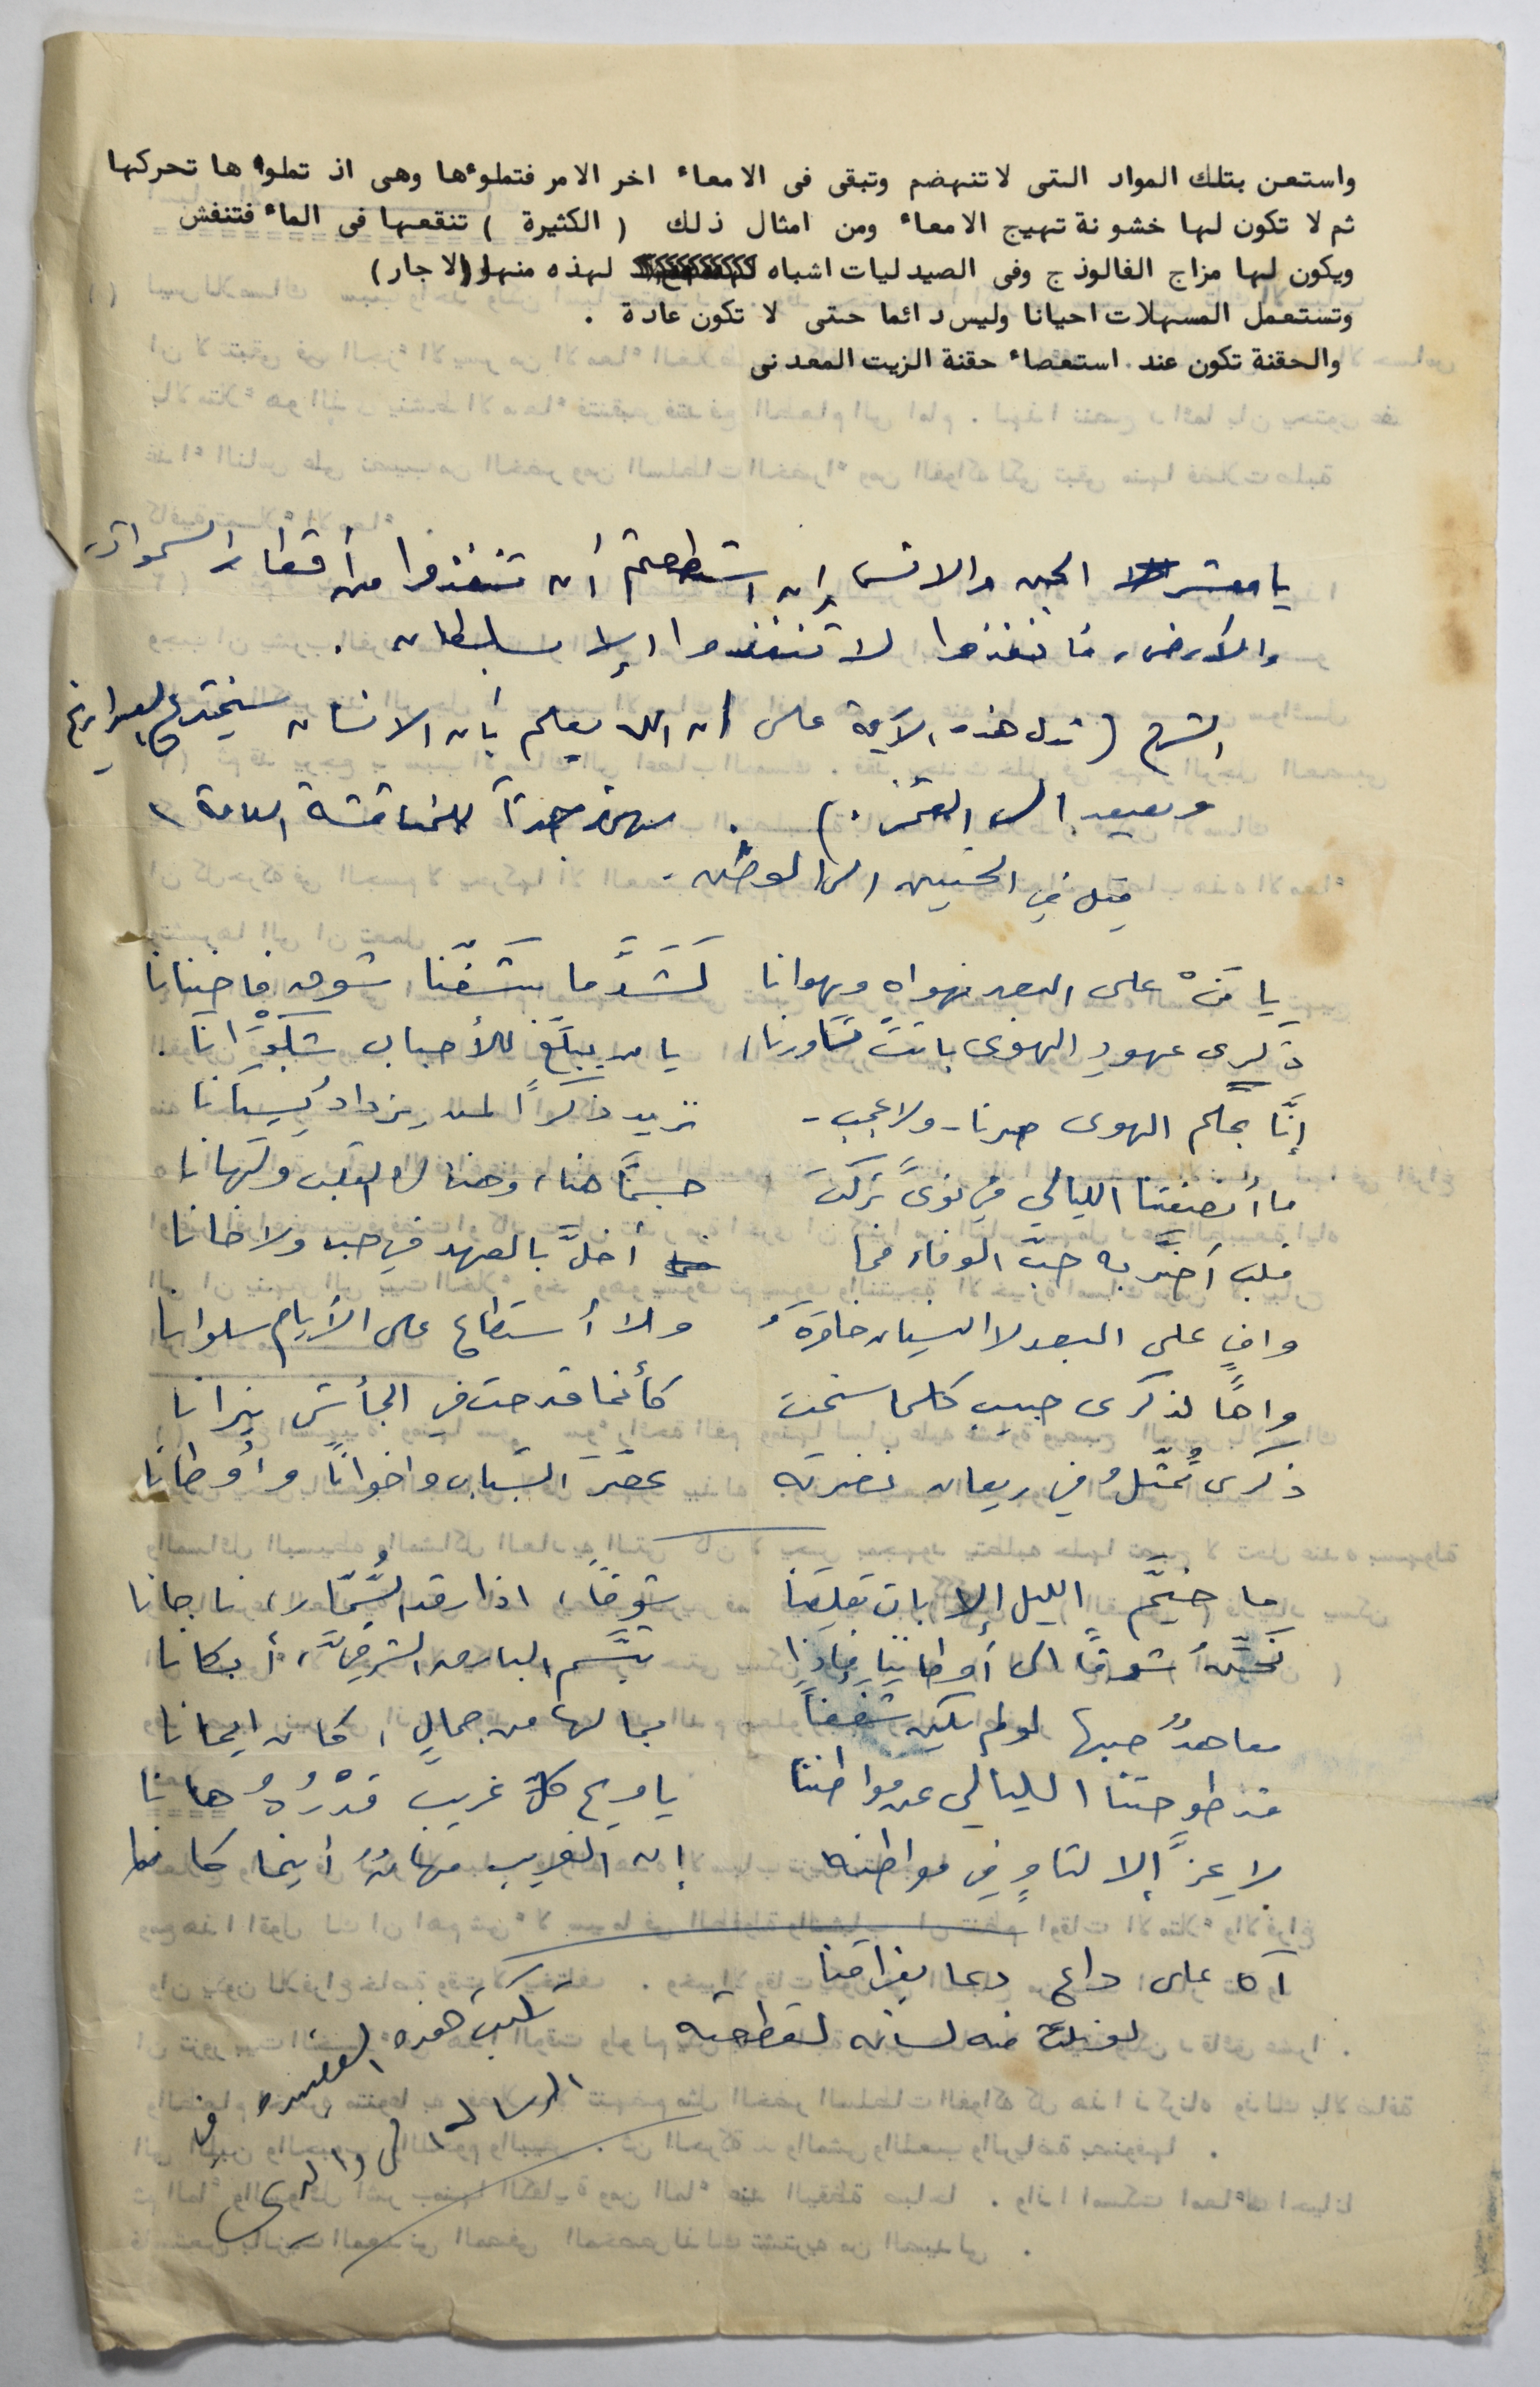 واستعن بتلك المواد التى لاتنهضم وتبقى فى الامعاء اخر الامر فتملوءها وهى اذ تملوء ها تحركها
ثم لا تكون لها خشونة تهيج الامعاء ومن امثال ذلك ( الكثيرة ) تنقعها فى الماء فتنفش
ويكون لها مزاج الفالوذج وفى الصيدليات اشباه لهذه منها (الاجار)
وتستعمل المسهلات احيانا وليس دائما حتى لا تكون عادة .
والحقنة تكون عند استعصاء حقنة الزيت المعدنى
يا معشر الجن والانس إن استطعتم أن تنفذوا من أقطار السموات
والأرض، فانفذوا لا تنفذوا إلا بسلطان .
الشرح ( تدل هذه الآية على ان الله يعلم بأن الانسان سيخترع الصواريخ
ويصعد الى القمر . ) . للمناقشة العامة
قيل في الحنين الى الوطن .
يا مَنْ على البعد نهواه ويهوانا لَشَدَّ ما شفّنا شوق فأضنانا
ذكرى عهودِ الهوى باتتْ تساورنا، يا من يبلّغ للأحباب شكوانا .
إنّا بحكم الهوى صرنا - ولا عجب - نزيد ذكراً لمن يزداد نسيانا
ما أنصفتنا الليالي في نوىً تركت جسمًا هنا، وهناك القلب ولهانا
قلب أضرّ به حبّ الوفاء فما أخلّ بالعهد في حب ولا خانا
وافٍ على البعد لا النسيان خامره ولا أستطاع على الأيام سلوانا
واهًا لذكرى حبيب كلما سنحت كأنما قدحت في الجأش نيرانا
ذكرى تُمثّلُ في ريعان نضرته عصر الشباب واخوانًا وأوطانا
ما خيّم الليل إلا بات يقلقنا شوقاً، اذا رقد السُّمّار، ناجانا
نحنّ شوقًا الى أوطاننا فإذا تبسّم البارق الشرقيّ، أبكانا
معاهدٌ حبها لو لم يكن شغفاً بما لها من جمالٍ، كان ايمانا
قد طوحتنا الليالي عن مواطننا يا ويح كل غريب قدْرُهُ هانا
لا عِزَّ إلا لثاوٍ في مواطنه إن الغريب مهانٌ أينما كانا
آه على داعٍ دعا بفراقنا
لو نلت منه لسانه لقطعته
كتبت هذه القصيده في
الرسالة الى والدى